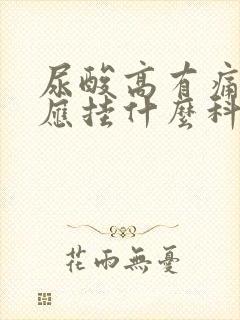 尿酸高有痛
應挂什麼科
花雨無憂